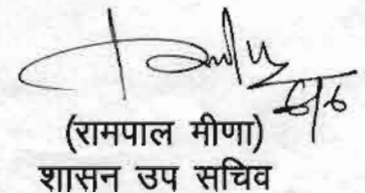 6/6
(रामपाल मीणा)
शासन उप सचिव